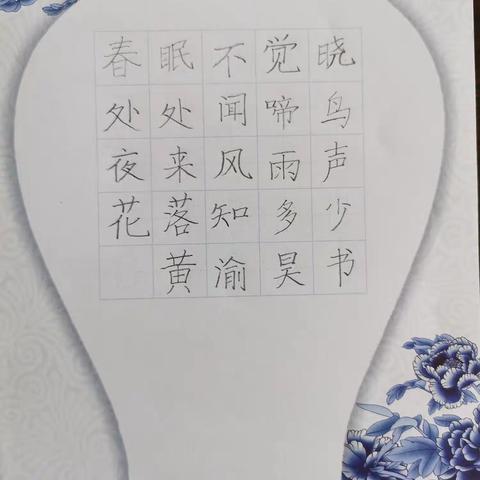 春眠不觉晓
处处闻啼鸟
夜来风雨声
花落知多少
黄渝昊书